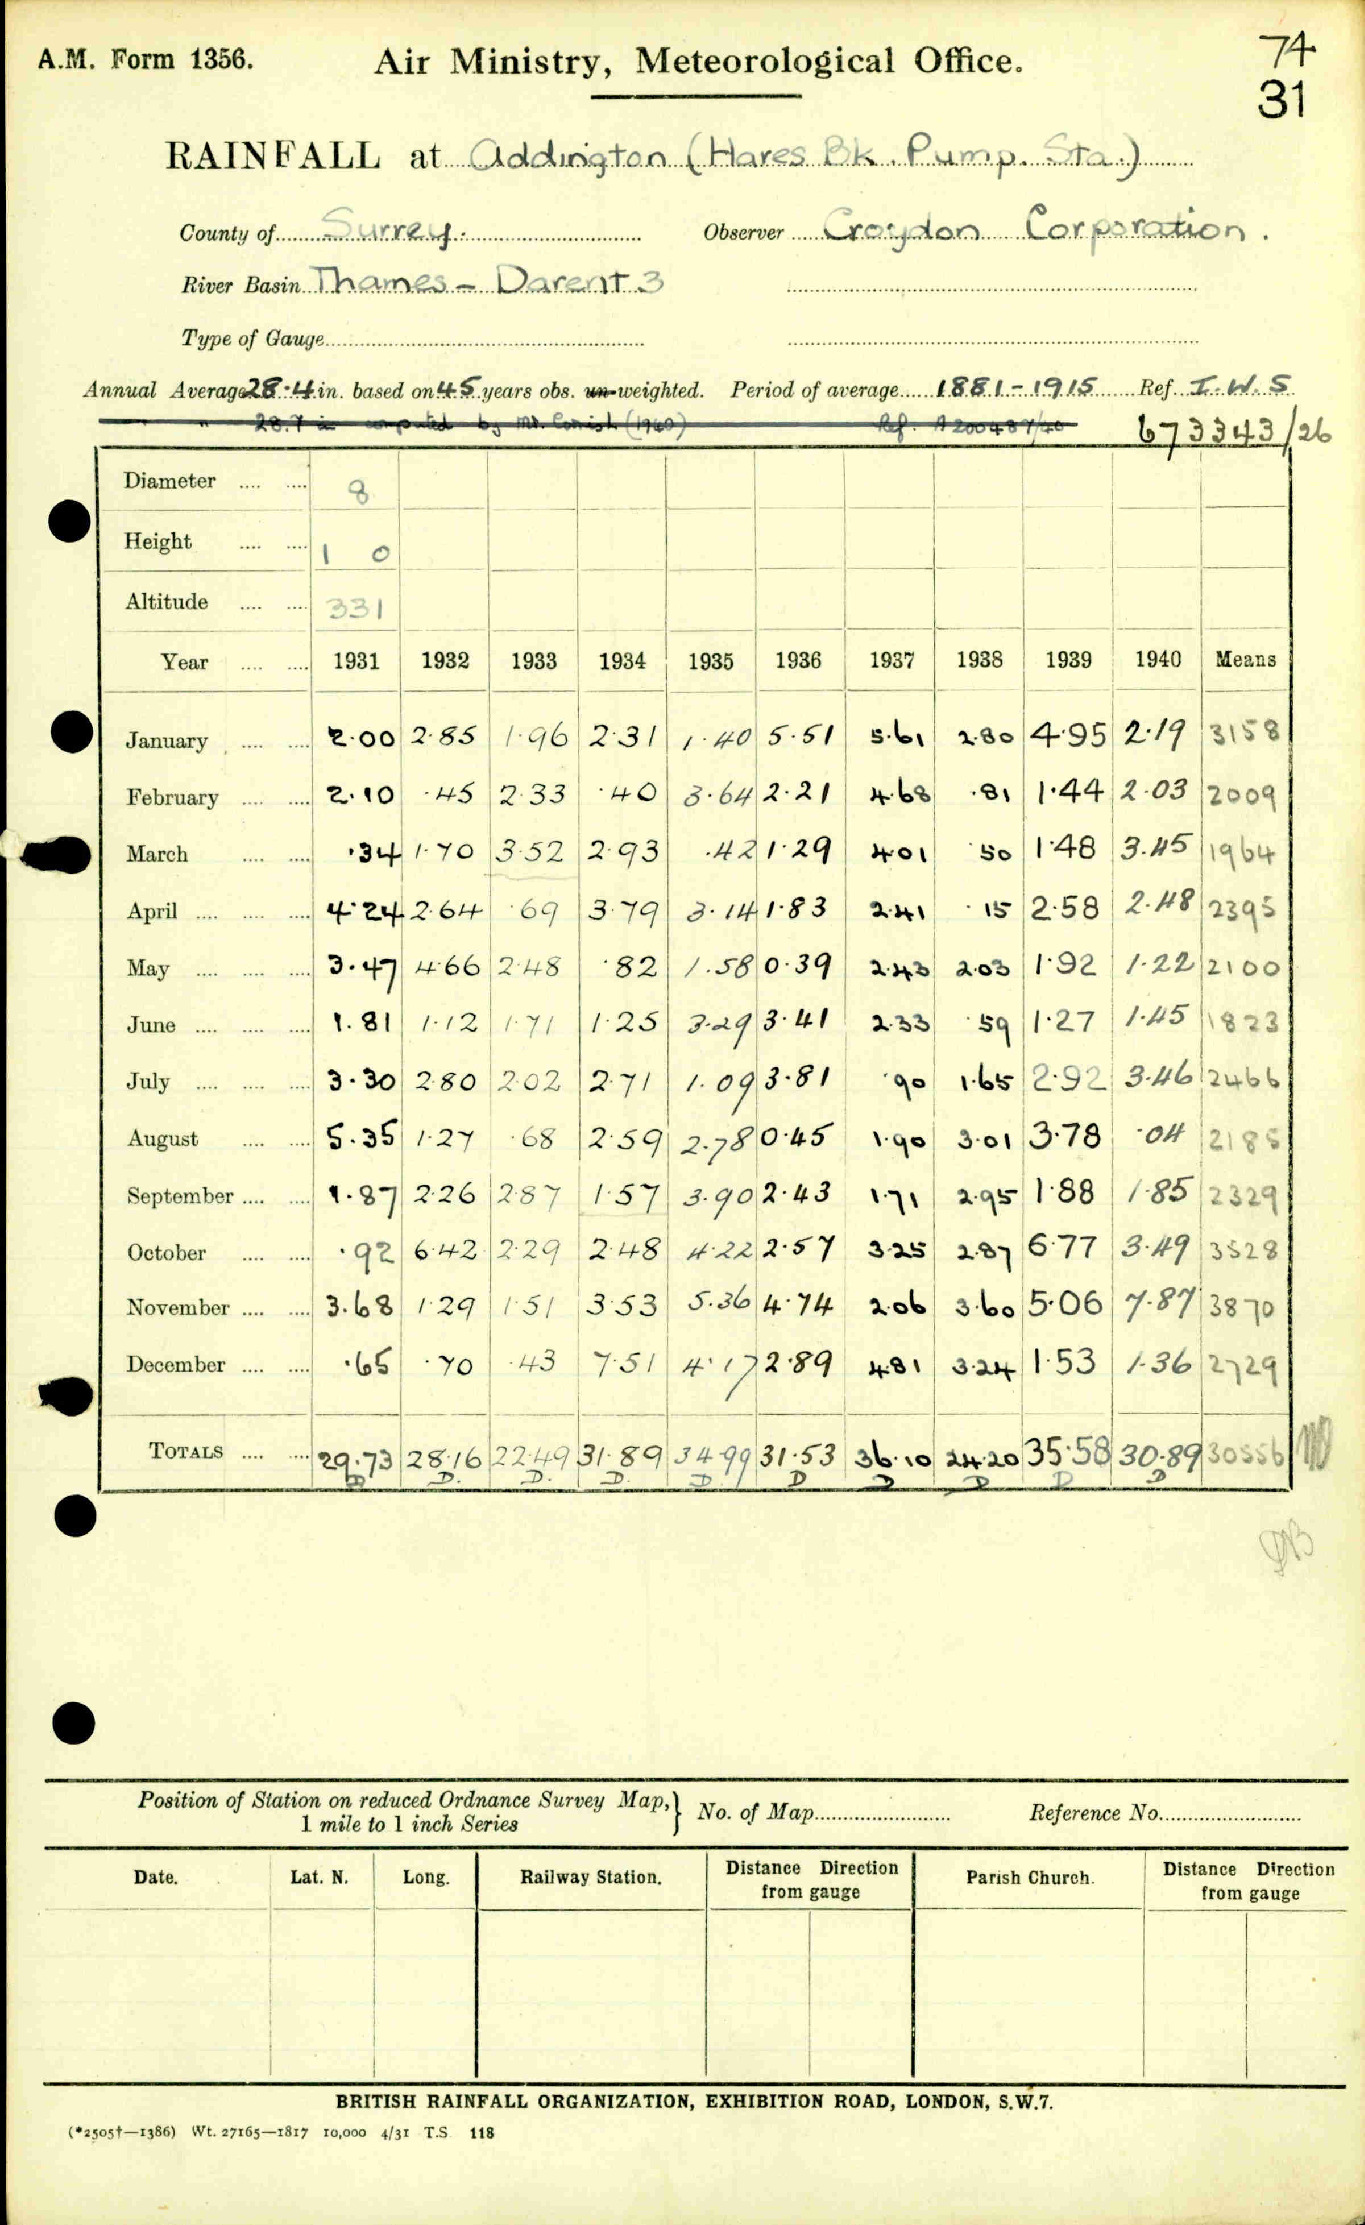 A.M. Form 1356. Air Ministry, Meteorological Office. 74
31
RAINFALL at Addington (Hares Bk. Pump. Sta.)
County of Surrey. Observer Croydon Corporation.
River Basin Thames - Darent 3
Type of Gauge
Annual Average 28.4 in. based on 45 years obs. un-weighted. Period of average 1881-1915 Ref. I.W.S
" 28.7 in computed by Mr. Cornish (1940) Ref. A200487/40 673343/26
Diameter 8
Height 1 0
Altitude 331
Year 1931 1932 1933 1934 1935 1936 1937 1938 1939 1940 Means
January 2.00 2.85 1.96 2.31 1.40 5.51 5.61 2.80 4.95 2.19 3158
February 2.10 .45 2.33 .40 3.64 2.21 4.68 .81 1.44 2.03 2009
March .34 1.70 3.52 2.93 .42 1.29 4.01 .50 1.48 3.45 1964
April 4.24 2.64 .69 3.79 3.14 1.83 2.41 .15 2.58 2.48 2395
May 3.47 4.66 2.48 .82 1.58 0.39 2.43 2.03 1.92 1.22 2100
June 1.81 1.12 1.71 1.25 3.29 3.41 2.33 .59 1.27 1.45 1823
July 3.30 2.80 2.02 2.71 1.09 3.81 .90 1.65 2.92 3.46 2466
August 5.35 1.27 .68 2.59 2.78 0.45 1.90 3.01 3.78 .04 2185
September 1.87 2.26 2.87 1.57 3.90 2.43 1.71 2.95 1.88 1.85 2329
October .92 6.42 2.29 2.48 4.22 2.57 3.25 2.87 6.77 3.49 3528
November 3.68 1.29 1.51 3.53 5.36 4.74 2.06 3.60 5.06 7.87 3870
December .65 .70 .43 7.51 4.17 2.89 4.81 3.24 1.53 1.36 2729
TOTALS 29.73 28.16 22.49 31.89 34.99 31.53 36.10 24.20 35.58 30.89 30556
D D. D. D. D D D D D D
Position of Station on reduced Ordnance Survey Map, } No. of Map Reference No.
1 mile to 1 inch Series
Date. Lat. N. Long. Railway Station. Distance Direction from gauge Parish Church. Distance Direction from gauge
BRITISH RAINFALL ORGANIZATION, EXHIBITION ROAD, LONDON, S.W.7.
(*2505†—1386) Wt. 27165—1817 10,000 4/31 T.S. 118